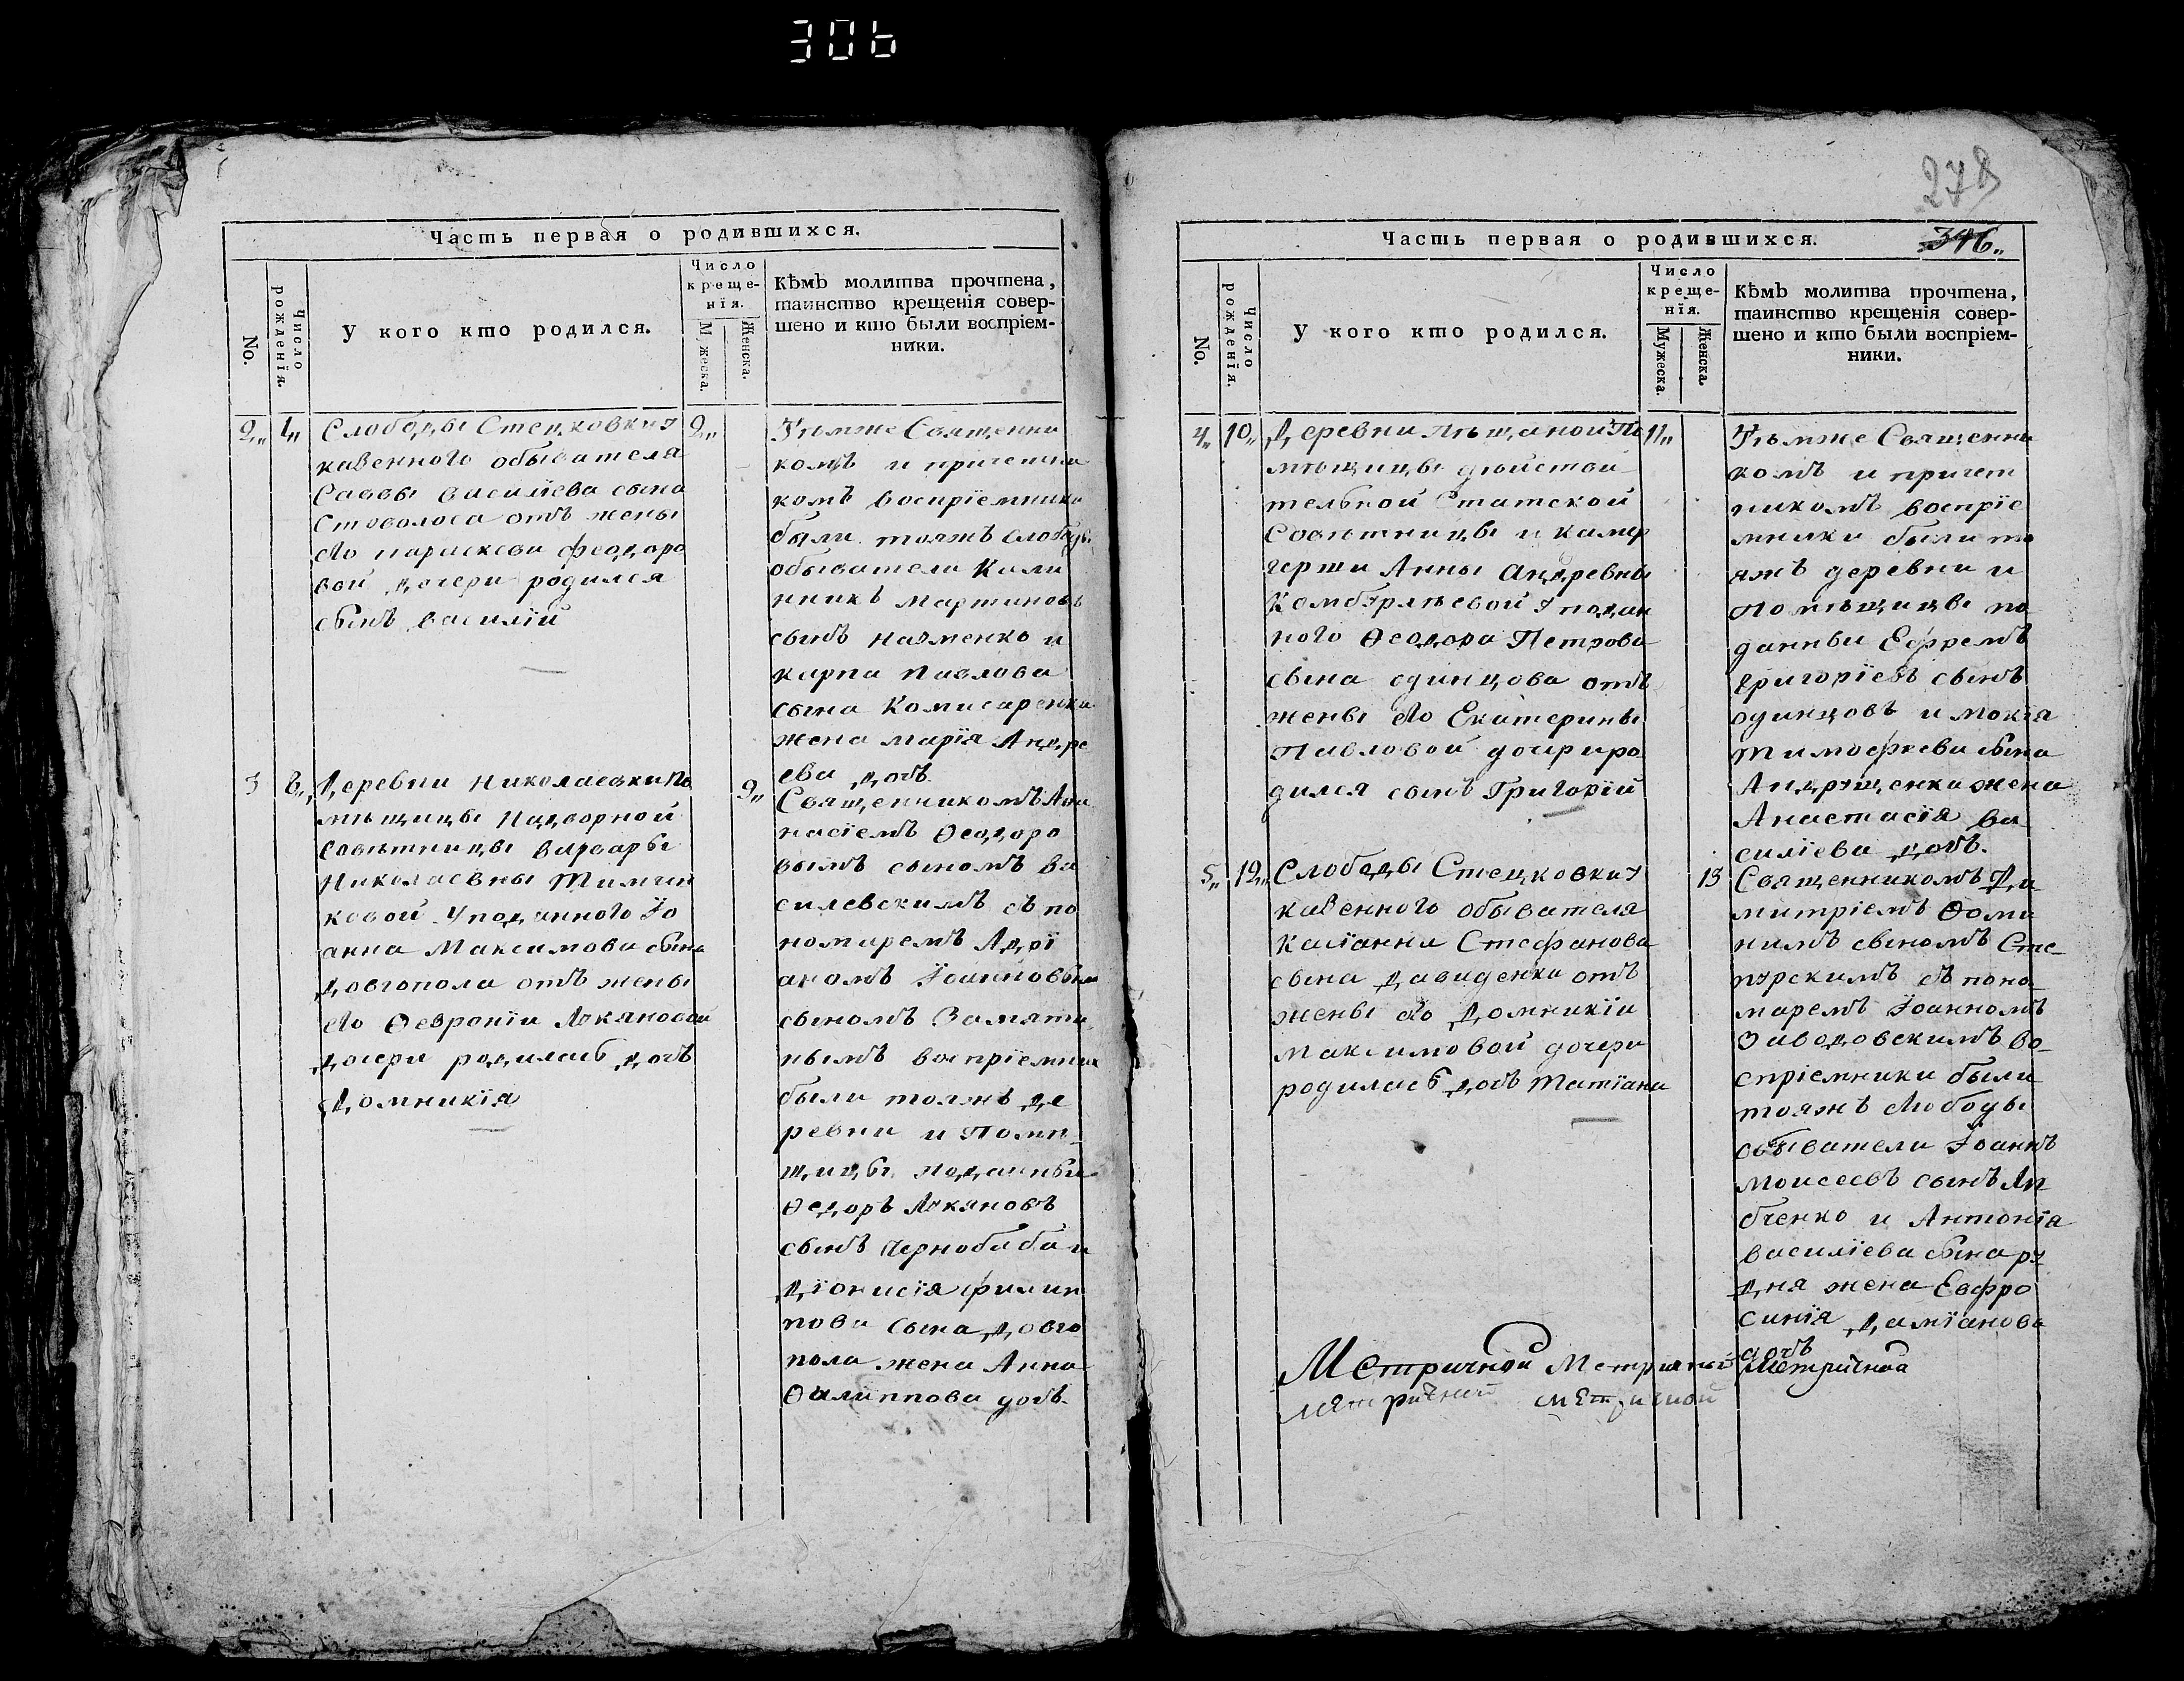 306
Часть первая о родившихся.
No.
Число рожденїя.
У кого кто родился.
Число креще-нїя.
Мужеска.
Женска.
Кѣмъ молитва прочтена,
таинство крещенїя совер-
шено и кто были воспрїем-
ники.
2„ 1„ Слободы Стецковки у
казенного обывателя
Саввы василїева сына
Стоволоса отъ жены
его параскеви феодоро
вой дочери родился
сынъ василїй
2„
Тѣмже Священни
комъ и причетни
комъ воспрїемники
были тояжъ слободы
обыватели Кали
нникъ Мартиновъ
сынъ Науменко и
карпа павлова
сына Комисаренка
жена марїя Андре
ева дочь.
3 8„ Деревни николаевки По
мѣщицы Надворной
Совѣтницы варвары
Николаевны Тимчен
ковой У подданного Іо
анна Максимова сына
Довгопола отъ жены
его Ѳеврониї Лукяновой
дочери родилась дочь
Домникїя
9„
Священникомъ Афа
насїемъ Ѳеодоро
вымъ сыномъ ва
силевскимъ съ по
номаремъ Адрї
аномъ Їоанновымъ
сыномъ Замяти
нымъ воспрїемники
были тояжъ де
ревни и Помѣ
щицы подданныи
Ѳедоръ Лукяновъ
сынъ Чернобаба и
Дїонисїя филип
пова сына Довго
пола жена Анна
Филиппова дочь.
278
346„
Часть первая о родившихся.
No.
Число рожденїя.
У кого кто родился.
Число креще-нїя.
Мужеска.
Женска.
Кѣмъ молитва прочтена,
таинство крещенїя совер-
шено и кто были воспрїем-
ники.
4„ 10„ Деревни пѣщаной По
мѣщицы дѣйстви
тельной Статской
Совѣтницы и камер
герши Анны Андревны
Комбурлѣевой У поддан
ного Ѳеодора Петрова
сына одинцова отъ
жены его Екатерины
Павловой дочри ро
дился сынъ Григорїй
11„
Тѣмже Священни
комъ и причет
никомъ воспрїе
мники были то
яжъ деревни и
Помѣщицы по
данныи Ефремъ
григорїевъ сынъ
одинцовъ и мокїя
Тимофѣева сына
Андрущенка жена
Анастасїя ва
силїева дочь.
5„ 12„ Слободы Стецковки у
казенного обывателя
Касїанна Стефанова
сына Давиденка отъ
жены его Домникїи
Максимовой дочери
родилась дочь Татїана
13
Священникомъ Ди
митрїемъ Ѳоми
нимъ сыномъ Сте
пурскимъ съ поно
маремъ Їоанномъ
Заводовскимъ во-
спрїемники были
тояжъ слободы
обыватели Їоаннъ
моисеевъ сынъ
бченко и Антонїя
василїева сына ру
дня жена Евфро
синїя Дамїанова
дочь
Метричной Метричной Метричной
метричной метричной